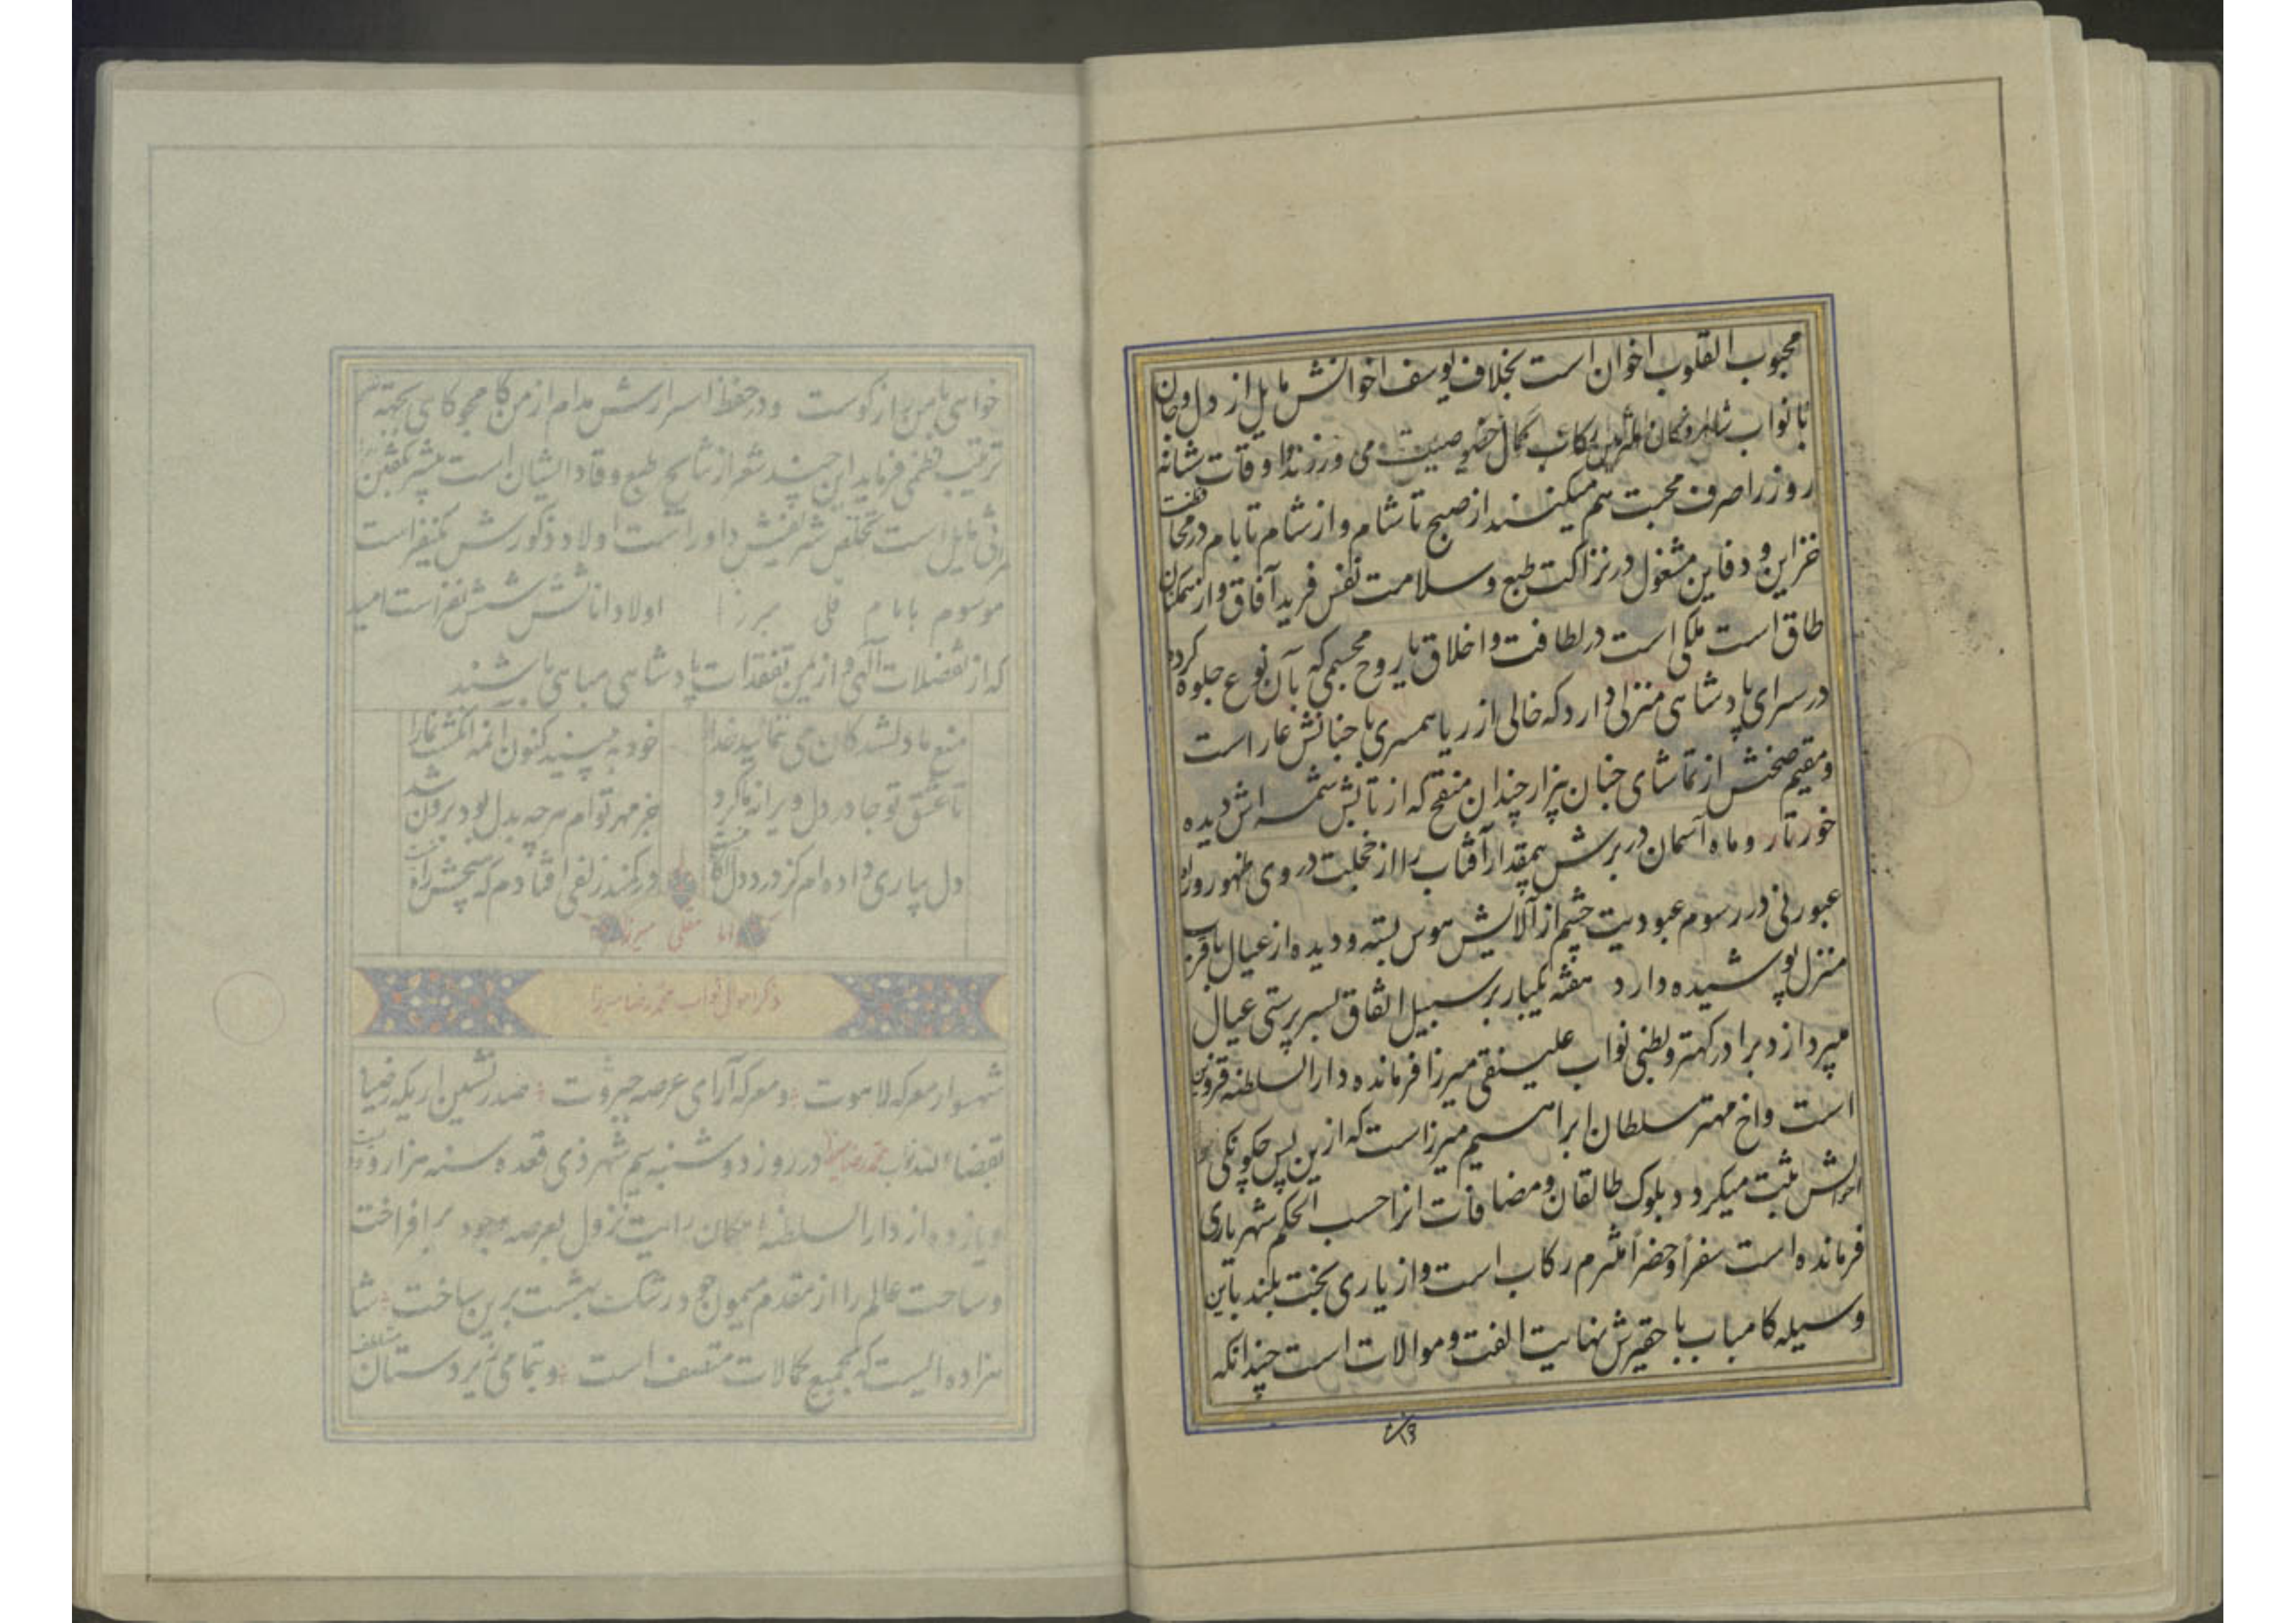 محبوب القلوب اخوان است بخلاف یوسف اخوانش مایل از دل و جان
با نواب کمال خصوصیت می ورزند و اوقات شبانه
روز را صرف محبت هم میکنند از صبح تا شام و از شام تا بام در محافظت
خزاین و دفاین مشغول در نزاکت طبع و سلامت نفس فرید آفاق و از همگنان
طاق است ملکی است در لطافت و اخلاق یا روح مجسمی که بآن نوع جلوه کرده
در سرای پادشاهی منزلی دارد که خالی از ریا همسری با جنانش عار است
و مقیم صحنش از تماشای جنان هزار چندان که از تابش شمسه اش دیده
خور تار و ماه آسمان در برش بیمقدار آفتاب را از خجلت در وی ظهور و نه
عبور نی در رسوم عبودیت چشم از آلایش هوس بسته و دیده از عیال با قرب
منزل پوشیده دارد هفته یکبار بر سبیل اتفاق بسرپرستی عیال
میپردازد برادر کهتر و بطنی نواب علینقی میرزا فرمانده دار السلطنه قزوین
است و اخ مهتر سلطان ابراهیم میرزا است که ازین پس چگونگی
احوالش ثبت میگردد بلوک طالقان و مضافات انرا حسب الحکم شهریاری
فرمانده است سفراً و حضراً ملتزم رکاب است و از یاری بخت بلند باین
وسیله کامیاب با حقیرش نهایت الفت و موالات است چندانکه
خواهی با من براز گوست و در حفظ اسرارش مدام از من مجو کاهی بجهة
ترتیب نظمی فرماید این چند شعر از نتایج طبع وقاد ایشان است بیشتر
مایل است تخلص شریفش داور است اولاد ذکورش یکنفر است
موسوم بامام قلی میرزا اولاد اناثش شش نفر است امید
که از تفضلات آلهی و از یمن تفقدات پادشاهی مباهی باشند
منع ما دلشدگان می ننمائید خدا را خود به بینید کنون انمه انگشت نما را
تا عشق تو جا در دل ویرانه ما کرد جز مهر تو ام هرچه بدل بود برون شد
دل بیاری داده ام کز درد دل در کمند زلفی افتادم که
میرزا
ذکر احوال نواب محمد رضا میرزا
شهسوار معرکه لاهوت و معرکه آرای عرصه جبروت صدر نشین اریکه رضیا
بقضاء الله نواب محمد رضا میرزا در روز دوشنبه شهر ذی قعده سنه هزار و دویست
و یازده از دار السلطنه امکان رایت نزول بعرصه وجود برافراخت
و ساحت عالم را از مقدم میمون خود رشک بهشت برین ساخت شا
هزاده ایست که بجمیع کمالات متصف است و تمامی